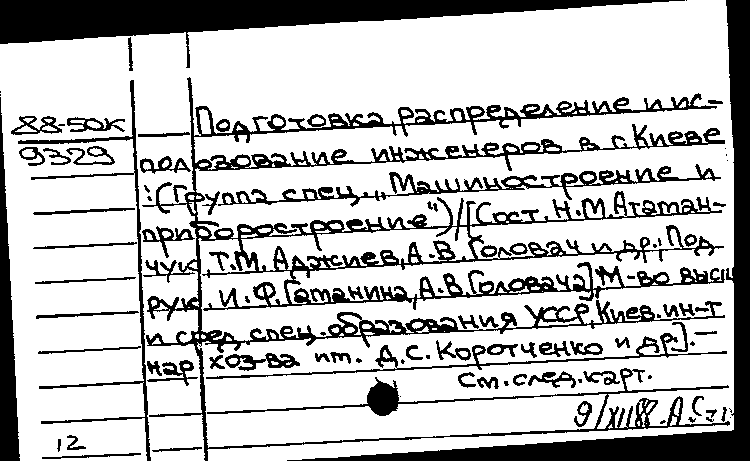 88-50К
9329
Подготовка, распределение и ис-
пользование инженеров в г. Киеве
:(Группа спец. „Машиностроение и
приборостроение")/[Сост. Н.М.Атаман-
чук, Т.М. Аджиев, А.В. Головач и др.; Под
рук. И.Ф. Гатанина, А.В. Головача]; М-во высш
и сред. спец. образования УССР, Киев. ин-т
нар хоз-ва им. Д.С. Коротченко и др.]. —
См. след. карт.
9/XII88.
12